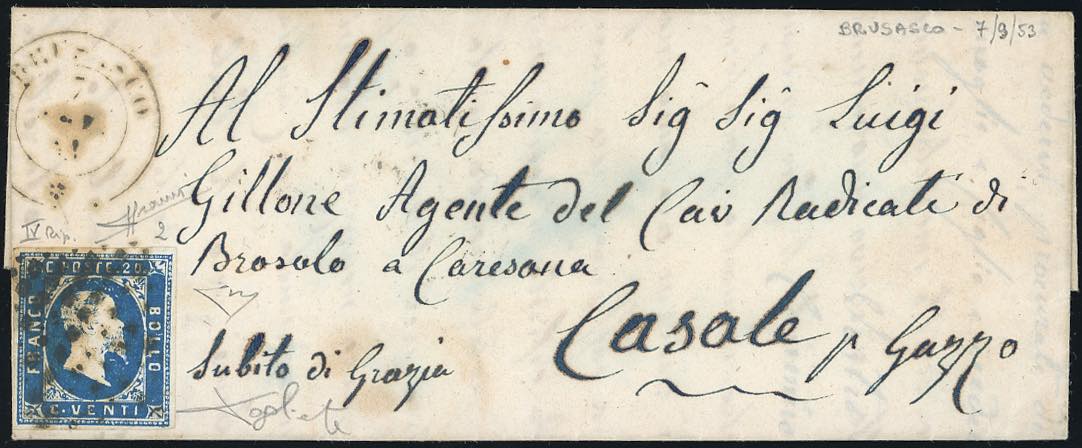 BRUSASCO - 7/9/53
BRUSASCO
Al Stimatissimo Sig Sig Luigi
Gillone Agente del Cav Radicati di
Brosolo a Caresana
Casale p Gazzo
Subito di Grazia
IV Rip.
2
C. POSTE. 20
FRANCO
BOLLO
C. VENTI